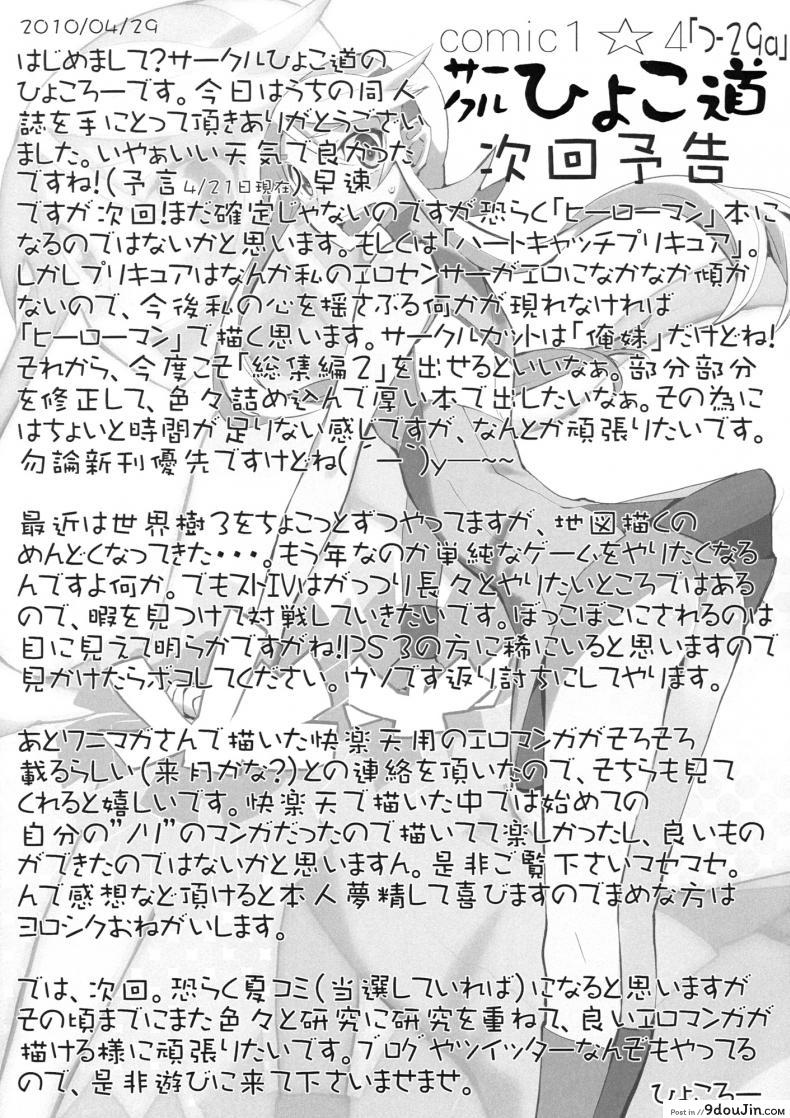 2010/04/29
comic1☆4「つ-29a」
サークルひよこ道
次回予告
はじめまして?サークルひよこ道の
ひょころーです。今日はうちの同人
誌を手にとって頂きありがとうござい
ました。いやぁいい天気で良かった
ですね!(予言4/21日現在)早速
ですが次回!まだ確定じゃないのですが恐らく「ヒーローマン」本に
なるのではないかと思います。もしくは「ハートキャッチプリキュア」。
しかしプリキュアはなんか私のエロセンサーがエロになかなか傾か
ないので、今後私の心を揺さぶる何かが現れなければ
「ヒーローマン」で描く思います。サークルカットは「俺妹」だけどね!
それから、今度こそ「総集編2」を出せるといいなぁ。部分部分
を修正して、色々詰め込んで厚い本で出したいなぁ。その為に
はちょいと時間が足りない感じですが、なんとか頑張りたいです。
勿論新刊優先ですけどね(´ー`)y―~~
最近は世界樹3をちょこっとずつやってますが、地図描くの
めんどくなってきた・・・。もう年なのか単純なゲームをやりたくなる
んですよ何か。でもストIVはがっつり長々とやりたいところではある
ので、暇を見つけて対戦していきたいです。ぼっこぼこにされるのは
目に見えて明らかですがね!PS3の方に稀にいると思いますので
見かけたらボコしてください。ウソです返り討ちにしてやります。
あとワニマガさんで描いた快楽天用のエロマンガがそろそろ
載るらしい(来月かな?)との連絡を頂いたので、そちらも見て
くれると嬉しいです。快楽天で描いた中では始めての
自分の"ノリ"のマンガだったので描いてて楽しかったし、良いもの
ができたのではないかと思いますん。是非ご覧下さいマセマセ。
んで感想など頂けると本人夢精して喜びますのでまめな方は
ヨロシクおねがいします。
では、次回。恐らく夏コミ(当選していれば)になると思いますが
その頃までにまた色々と研究に研究を重ねて、良いエロマンガが
描ける様に頑張りたいです。ブログやツイッターなんぞもやってる
ので、是非遊びに来て下さいませませ。
ひょころー
Post in // 9douJin.com